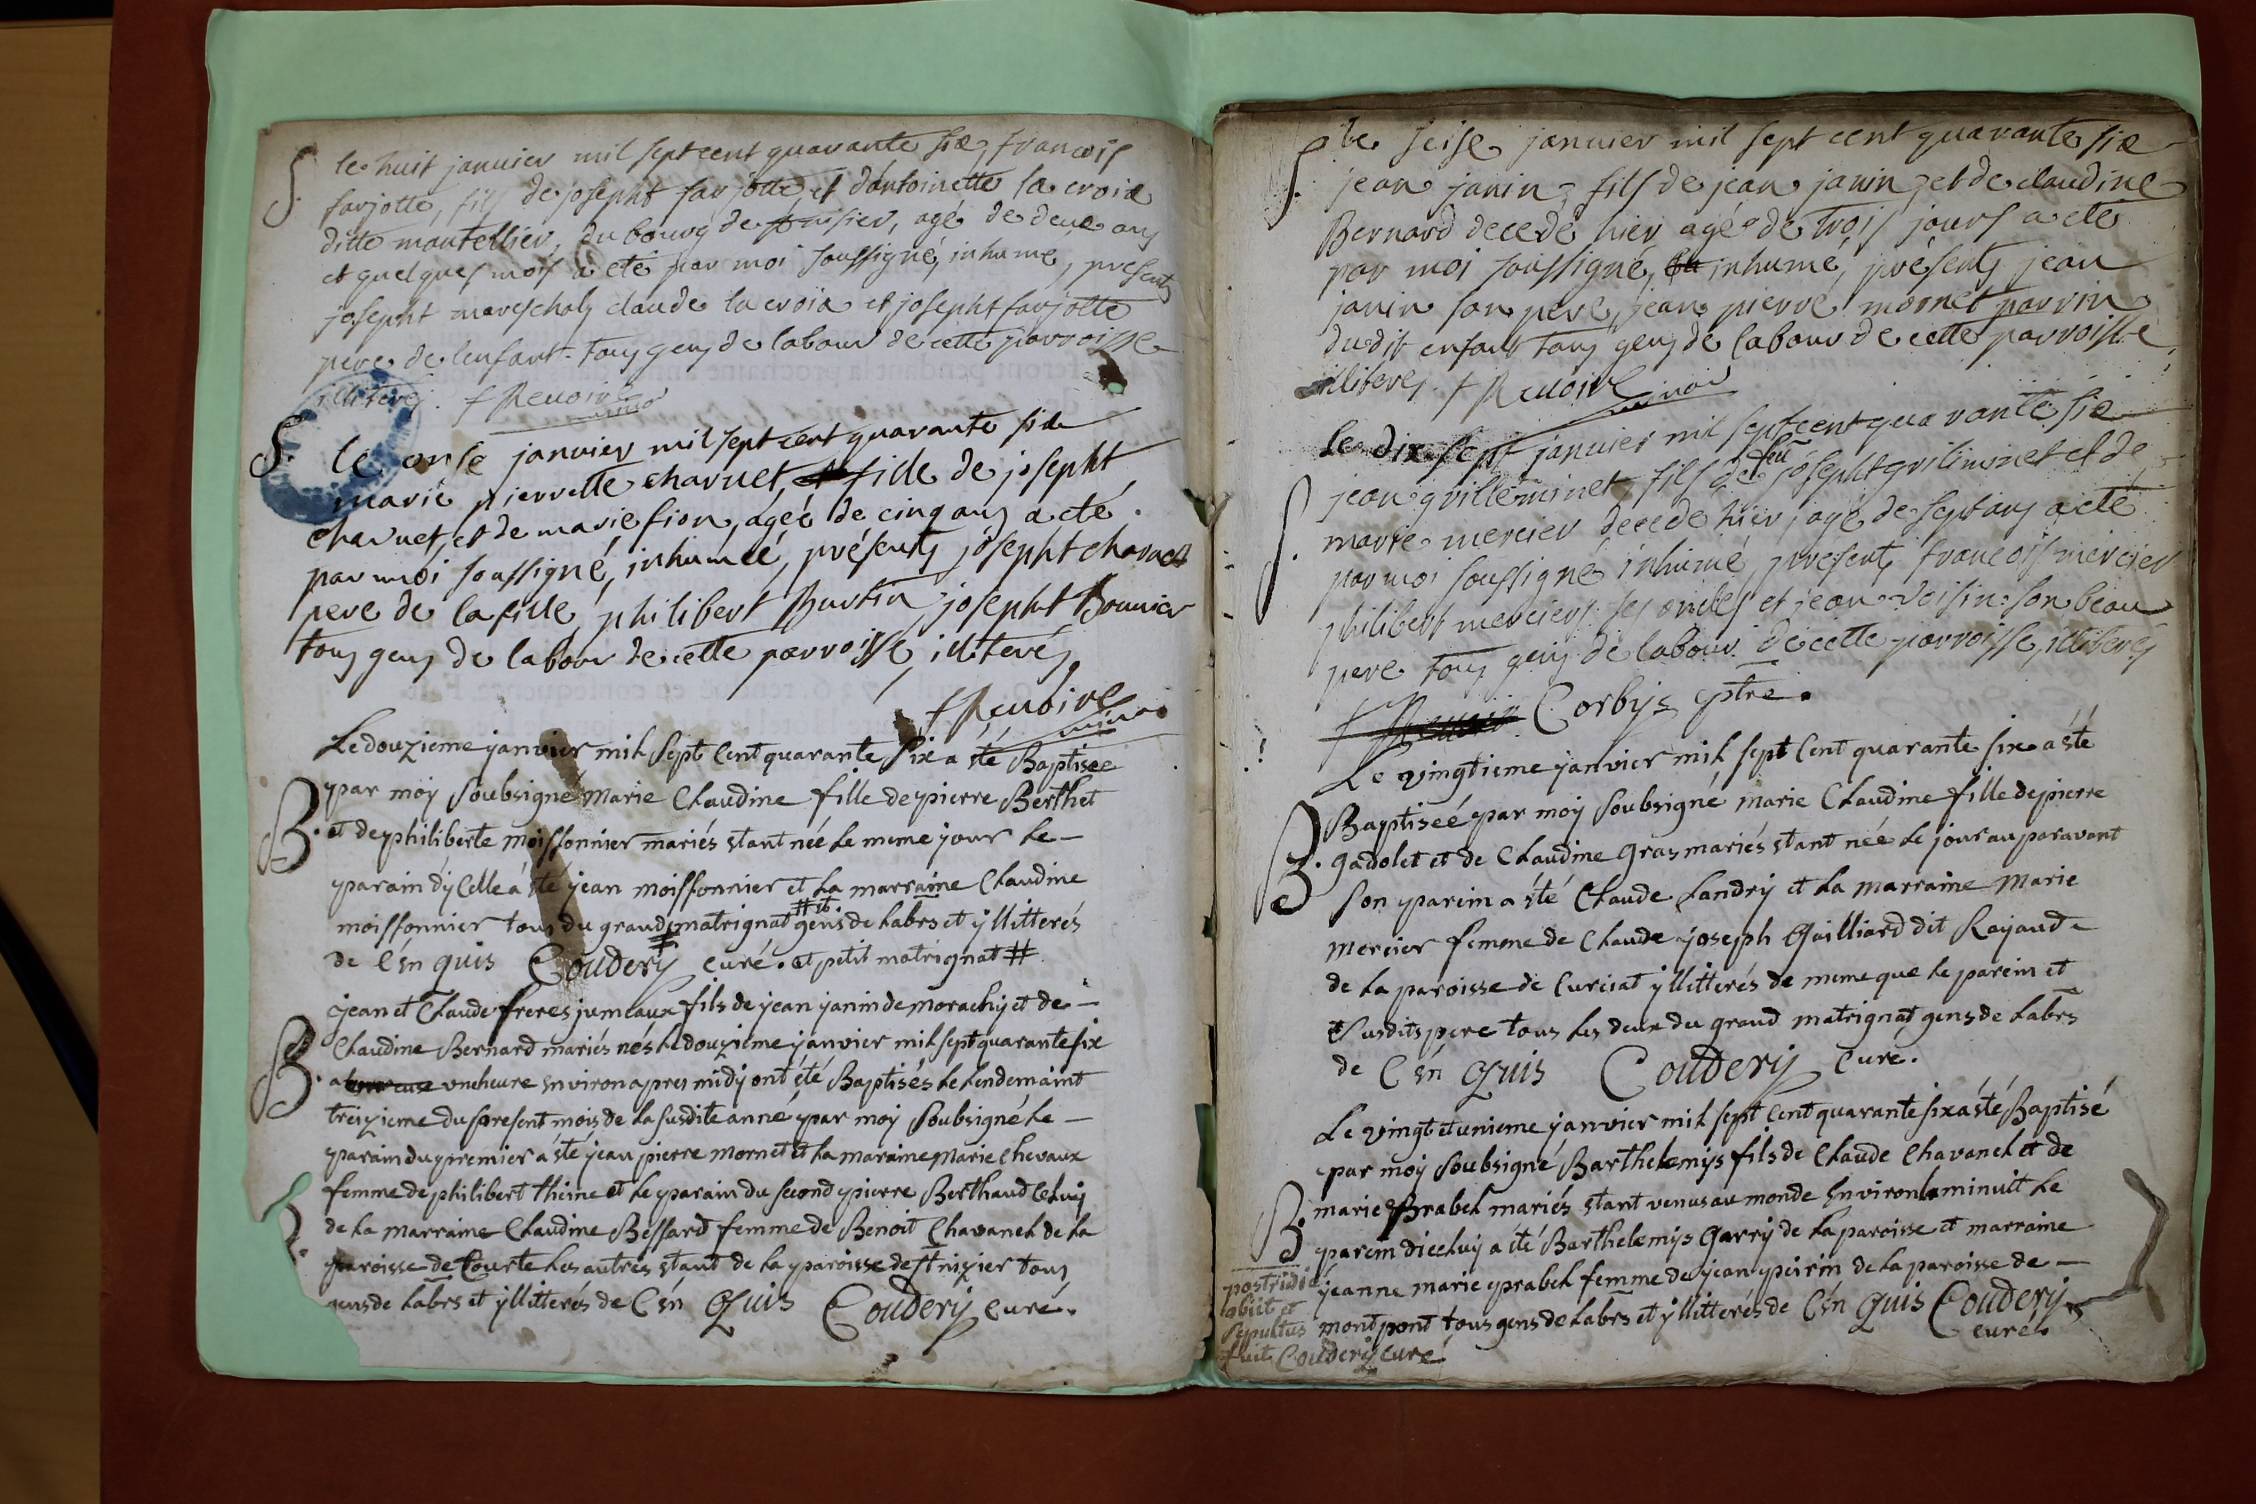 S. le huit janvier mil sept cent quarante six, francois
farjotte, fils de josepht farjotte, et dantoinette la croix
ditte montellier, du bourg de st nisier, agé de deux ans
et quelques mois a eté par moi soussigné, inhumé, presents
josepht mareschal, claude la croix et josepht farjotte
pere de lenfant. tous gens de labour de cette parroisse
illiterés. f Revoire
S. le onse janvier mil sept cent quarante six
marie pierrette charvet, fille de josepht
charvet, et de marie fion, agée de cinq ans a eté
par moi soussigné, inhumée, présents josepht charvet
pere de la fille, philibert Burtin, josepht Bouvier
tous gens de labour de cette parroisse, illiterés
f Revoire
Le douzieme janvier mil sept cent quarante six a été Baptisee
par moy soubsigné Marie Claudine fille de pierre Berthet
B. et de philiberte moissonnier mariés etant née le meme jour le
parain dy celle á été jean moissonnier et la marraine Claudine
moissonnier tous du grand # et matrignat gens de labrs et yllitterés
de C en quis Coudery curé. et petit matrignat #
jean et Claude freres jumeaux fils de jean janin de morachy et de
B. Claudine Bernard mariés nés le douzieme janvier mil sept quarante six
a une heure environ apres midy ont été Baptisés le lendemaint
treizieme du present mois de la susdite anné par moy soubsigné le
parain du premier á été jean pierre mornet et la maraine Marie Chevaux
femme de philibert theine et le parain du second pierre Berthaud celuy
B. de la marraine Claudine Bessard femme de Benoit Chavanel de la
paroisse de Courte les autres etant de la paroisse de st nizier tous
gens de labrs et yllitterés de C én Quis Coudery curé.
S. le seise janvier mil sept cent quarante six
jean janin, fils de jean janin, et de claudine
Bernard decedé hier agé de trois jours a eté
par moi soussigné, inhumé, présents jean
janin son pere, jean pierre mornet parrin
du dit enfant tous gens de labour de cette parroisse,
illiterés. f Revoire
Le dix sept janvier mil sept cent quarante six
S. jean grilleminet fils de feu josepht grilliminet et de
marie mercier decedé hier, agé de sept ans a eté
par moi soussigné inhumé, presents francois mercier
philibert mercier ses oncles et jean voisin son beau
pere tous gens de labour de cette parroisse, illiterés
f Revoir Corbys ptre.
Le vingtieme janvier mil sept cent quarante six a été
B. Baptiseé par moy soubsigné marie Claudine fille de pierre
gadolet et de Claudine Gras mariés etant neé le jour auparavant
son parein a été Claude Landry et la marraine Marie
mercier femme de Claude joseph Gailliard dit Rayaud
de la paroisse de Curciat yllitterés de meme que le parein et
susdits pere tous les deux du grand matrignat gens de labrs
de C én Quis Coudery Curé.
Le vingt et unieme janvier mil sept cent quarante six á été Baptisé
par moy soubsigné Barthelemys fils de Claude Chavanel et de
B. marie Prabel mariés etant venus au monde environ le minuit le
parein diceluy a été Barthelemys Garry de la paroisse et marraine
jeanne marie prabel femme de jean peirin de la paroisse de
montpont tous gens de labrs et yllitterés de C én Quis Coudery
curé.
postridie
obiit et
sepultus
fuit Coudery curé